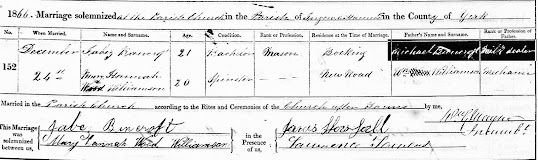 1866. Marriage solemnized at the Parish Church in the Parish of in the County of York
No. When Married. Name and Surname. Age. Condition. Rank or Profession. Residence at the Time of Marriage. Father's Name and Surname. Rank or Profession of Father.
152 December Jabez Bancroft 21 Bachelor Mason Bocking Michael Bancroft Milk dealer
24th Mary Hannah Wood Williamson 20 Spinster — New Road Wm Williamson Mechanic
Married in the Parish Church according to the Rites and Ceremonies of the Church after Banns by me,
This Marriage was solemnized between us, Jabez Bancroft in the Presence of us, James Horsfall
Mary Hannah Wood Williamson